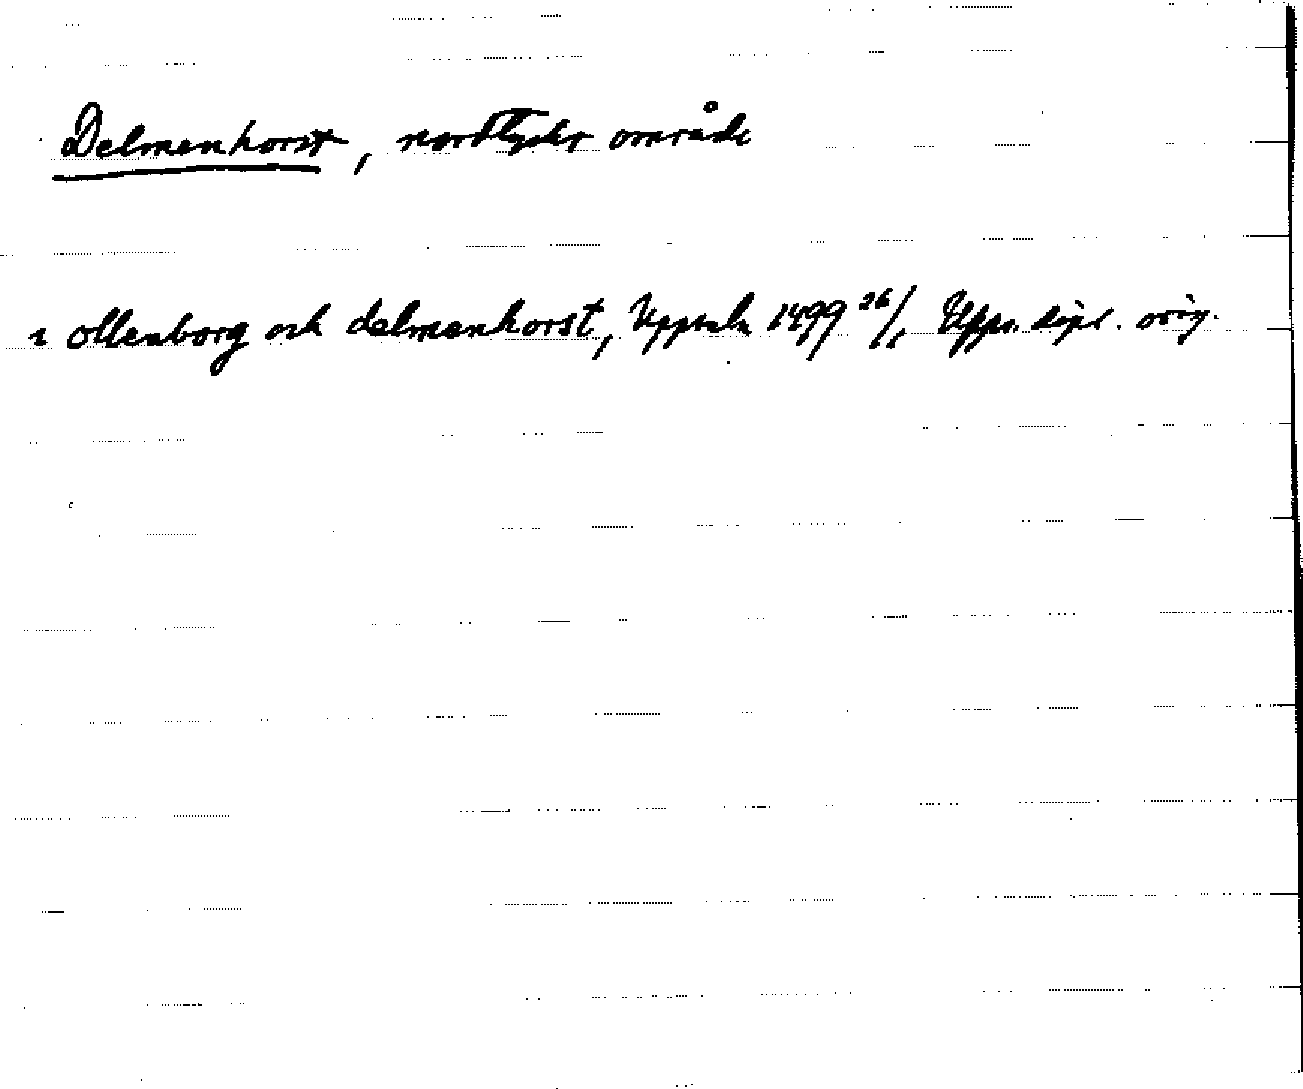 Delmenhorst, nordtyskt område
i ollenborg och delmenhorst, Uppsala 1499 26/1 Upps. dipl. orig.